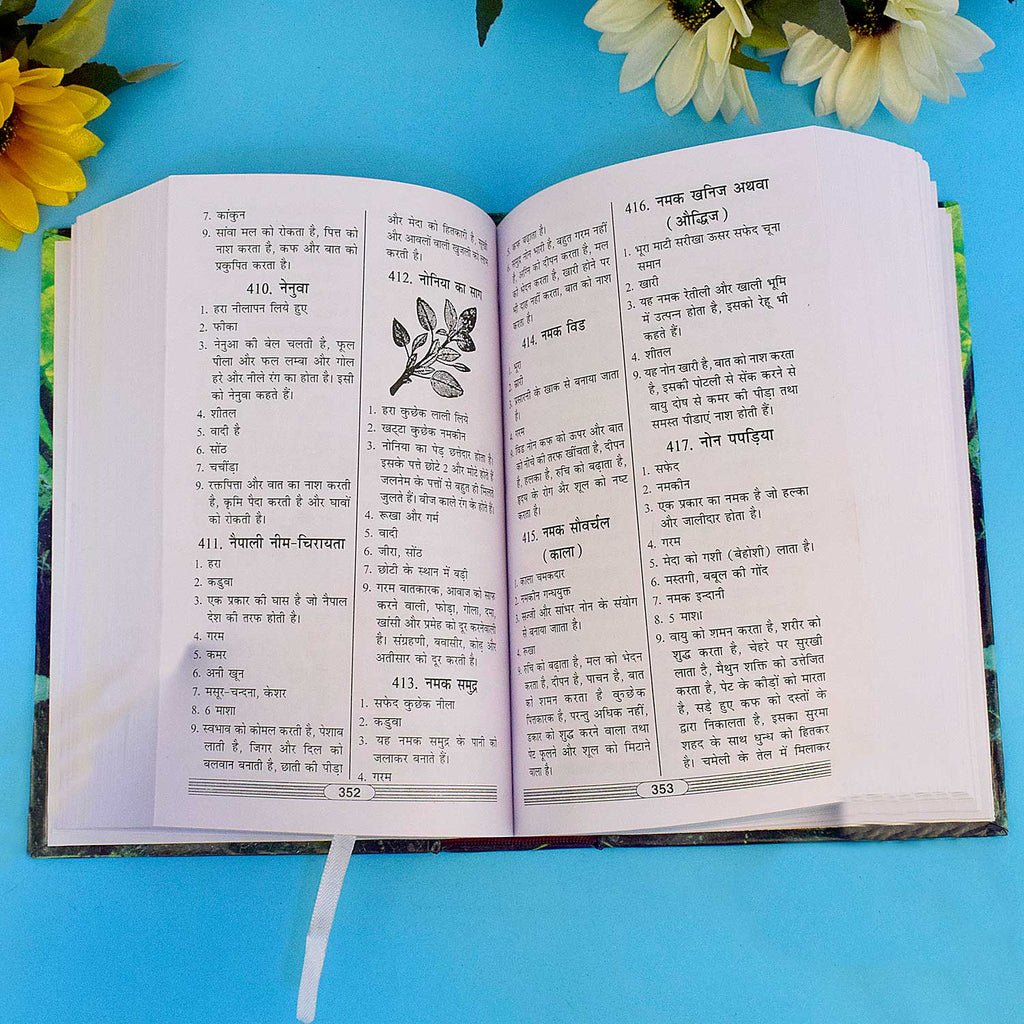 7. कांकुन
9. सांवा मल को रोकता है, पित्त को
नाश करता है, कफ और वात को
प्रकुपित करता है।
410. नेनुवा
1. हरा नीलापन लिये हुए
2. फीका
3. नेनुआ की बेल चलती है, फूल
पीला और फल लम्बा और गोल
हरे और नीले रंग का होता है। इसी
को नेनुवा कहते हैं।
4. शीतल
5. वादी है
6. सोंठ
7. चचींड़ा
9. रक्तपित्ता और वात का नाश करती
है, कृमि पैदा करती है और घावों
को रोकती है।
411. नैपाली नीम-चिरायता
1. हरा
2. कडुवा
3. एक प्रकार की घास है जो नैपाल
देश की तरफ होती है।
4. गरम
5. कमर
6. अनी खून
7. मसूर-चन्दना, केशर
8. 6 माशा
9. स्वभाव को कोमल करती है, पेशाब
लाती है, जिगर और दिल को
बलवान बनाती है, छाती की पीड़ा
और मेदा को हितकारी है,
और आवलों वाली खुजली को
करती है।
412. नोनिया का साग
1. हरा कुछेक लाली लिये
2. खट्टा कुछेक नमकीन
3. नोनिया का पेड़ छत्तेदार होता है।
इसके पत्ते छोटे 2 और मोटे होते हैं
जलनेम के पत्तों से बहुत ही मिलते
जुलते हैं। बीज काले रंग के होते हैं।
4. रूखा और गर्म
5. वादी
6. जीरा, सोंठ
7. छोटी के स्थान में बड़ी
9. गरम वातकारक, आवाज को साफ
करने वाली, फोड़ा, गोला, दमा,
खांसी और प्रमेह को दूर करनेवाली
है। संग्रहणी, बवासीर, कोढ़ और
अतीसार को दूर करती है।
413. नमक समुद्र
1. सफेद कुछेक नीला
2. कडुवा
3. यह नमक समुद्र के पानी को
जलाकर बनाते हैं।
4. गरम
352
कफ बढ़ाता है।
नोन भारी है, बहुत गरम नहीं
है, अग्नि को दीपन करता है, मल
को भेदन करता है, खारी होने पर
भी दाह नहीं करता, वात को नाश
करता है।
414. नमक विड
1. भूरा
2. खारी
3. के खाक से बनाया जाता
है।
4. गरम
9. विड नोन कफ को ऊपर और वात
को नीचे की तरफ खींचता है, दीपन
है, हलका है, रुचि को बढ़ाता है,
हृदय के रोग और शूल को नष्ट
करता है।
415. नमक सौवर्चल
(काला)
1. काला चमकदार
2. नमकीन गन्धयुक्त
3. सज्जी और सांभर नोन के संयोग
से बनाया जााता है।
4. रूखा
9. रुचि को बढ़ाता है, मल को भेदन
करता है, दीपन है, पाचन है, वात
को शमन करता है कुछेक
पित्तकारक है, परन्तु अधिक नहीं,
डकार को शुद्ध करने वाला तथा
पेट फूलने और शूल को मिटाने
वाला है।
416. नमक खनिज अथवा
(औद्भिज)
1. भूरा माटी सरीखा ऊसर सफेद चूना
समान
2. खारी
3. यह नमक रेतीली और खाली भूमि
में उत्पन्न होता है, इसको रेहू भी
कहते हैं।
4. शीतल
9. यह नोन खारी है, बात को नाश करता
है, इसकी पोटली से सेंक करने से
वायु दोष से कमर की पीड़ा तथा
समस्त पीडाएं नाश होती हैं।
417. नोन पपड़िया
1. सफेद
2. नमकीन
3. एक प्रकार का नमक है जो हल्का
और जालीदार होता है।
4. गरम
5. मेदा को गशी (बेहोशी) लाता है।
6. मस्तगी, बबूल की गोंद
7. नमक इन्दानी
8. 5 माशा
9. वायु को शमन करता है, शरीर को
शुद्ध करता है, चेहरे पर सुरखी
लाता है, मैथुन शक्ति को उत्तेजित
करता है, पेट के कीड़ों को मारता
है, सड़े हुए कफ को दस्तों के
द्वारा निकालता है, इसका सुरमा
शहद के साथ धुन्ध को हितकर
है। चमेली के तेल में मिलाकर
353